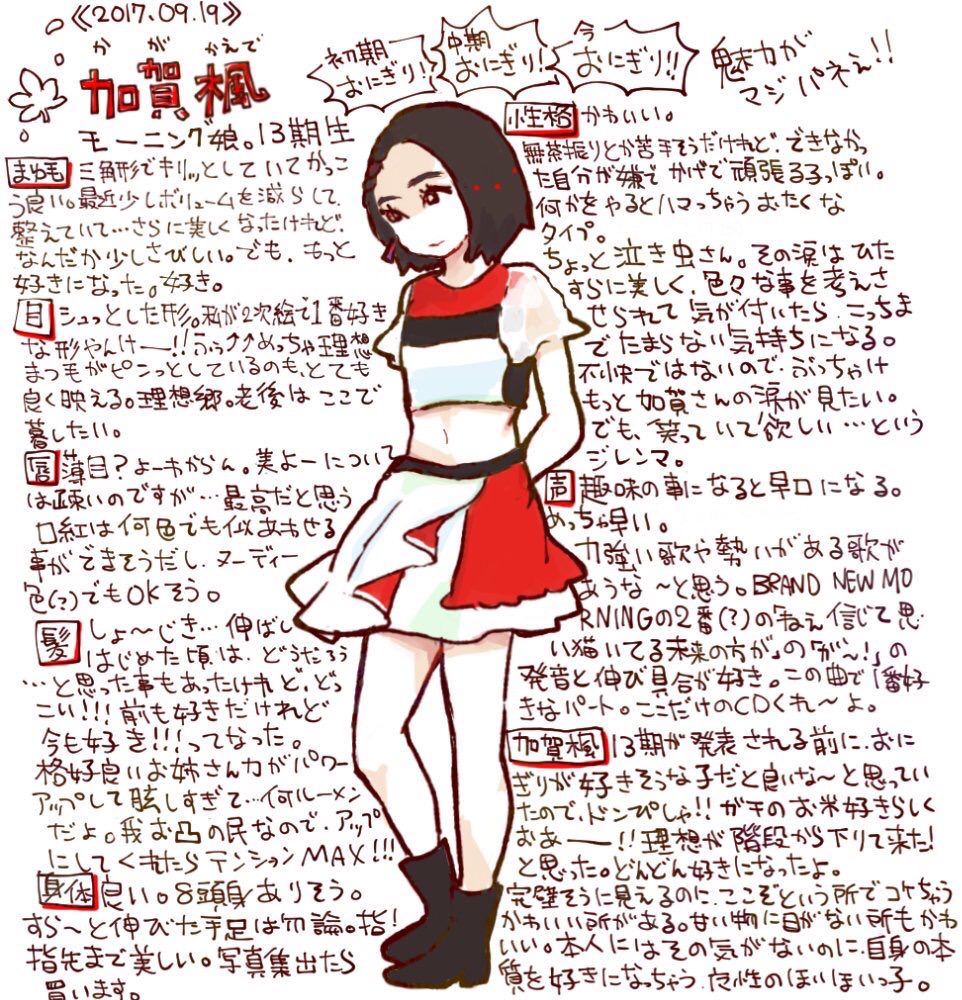 《2017.09.19》
かが かえで
加賀楓
モーニング娘。13期生
初期
おにぎり!
中期
おにぎり!
今
おにぎり!!
魅力が
マジパネぇ!!
まゆ毛 三角形でキリッとしていてかっこ
う良い。最近少しボリュームを減らして
整えていて…さらに美しくなったけれど、
なんだか少しさびしい。でも、もっと
好きになった。好き。
目 シュっとした形。私が2次絵で1番好き
な形やんけー!!ふぅ↑↑めっちゃ理想
まつ毛がピンっとしているのも、とても
良く映える。理想郷。老後はここで
暮したい。
唇 薄目?よーわからん。美よーについて
は疎いのですが…最高だと思う
口紅は何色でも似あわせる
事ができそうだし、ヌーディー
色(?)でもOKそう。
髪 しょ〜じき…伸ばし
はじめた頃は、どうだろう
…と思った事もあったけれど、どっ
こい!!!前も好きだけれど
今も好き!!!ってなった。
格好良いお姉さん力がパワー
アップして眩しすぎて…何ルーメン
だよ。我お凸の民なので、アップ
にしてくれたらテンションMAX!!!
身体 良い。8頭身ありそう。
すら〜と伸びた手足は勿論。指!
指先まで美しい。写真集出たら
買います。
性格 かわいい。
無茶振りとか苦手そうだけれど、できなかっ
た自分が嫌でかげで頑張るるっぽい。
何かをやるとハマっちゃうおたくな
タイプ。
ちょっと泣き虫さん。その涙はひた
すらに美しく、色々な事を考えさ
せられて気が付いたら、こっちま
でたまらない気持ちになる。
不快ではないので、ぶっちゃけ
もっと加賀さんの涙が見たい。
でも、笑っていて欲しい…という
ジレンマ。
声 趣味の事になると早口になる。
めっちゃ早い。
力強い歌や勢いがある歌が
あうな〜と思う。BRAND NEW MO
RNINGの2番(?)の「ねぇ信じて思
い描いてる未来の方が」の「が〜!」の
発音と伸び具合が好き。この曲で1番好
きなパート。ここだけのCDくれ〜よ。
加賀楓 13期が発表される前に、おに
ぎりが好きそうな子だと良いな〜と思ってい
たので、ドンぴしゃ!!ガチのお米好きらしく
おぁー!!理想が階段から下りて来た!
と思った。どんどん好きになったよ。
完璧そうに見えるのに、ここぞという所でコケちゃう
かわいい所がある。甘い物に目がない所もかわ
いい。本人にはその気がないのに、自身の本
質を好きになっちゃう、魔性のほいほいっ子。